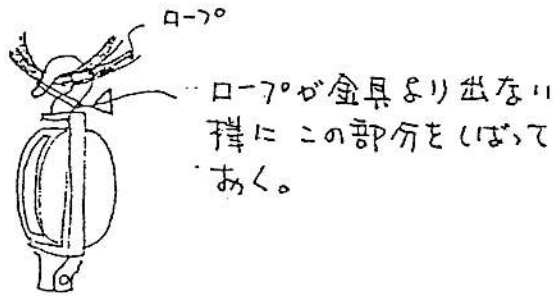 ロープ
ロープが金具より出ない
様に この部分をしばって
おく。